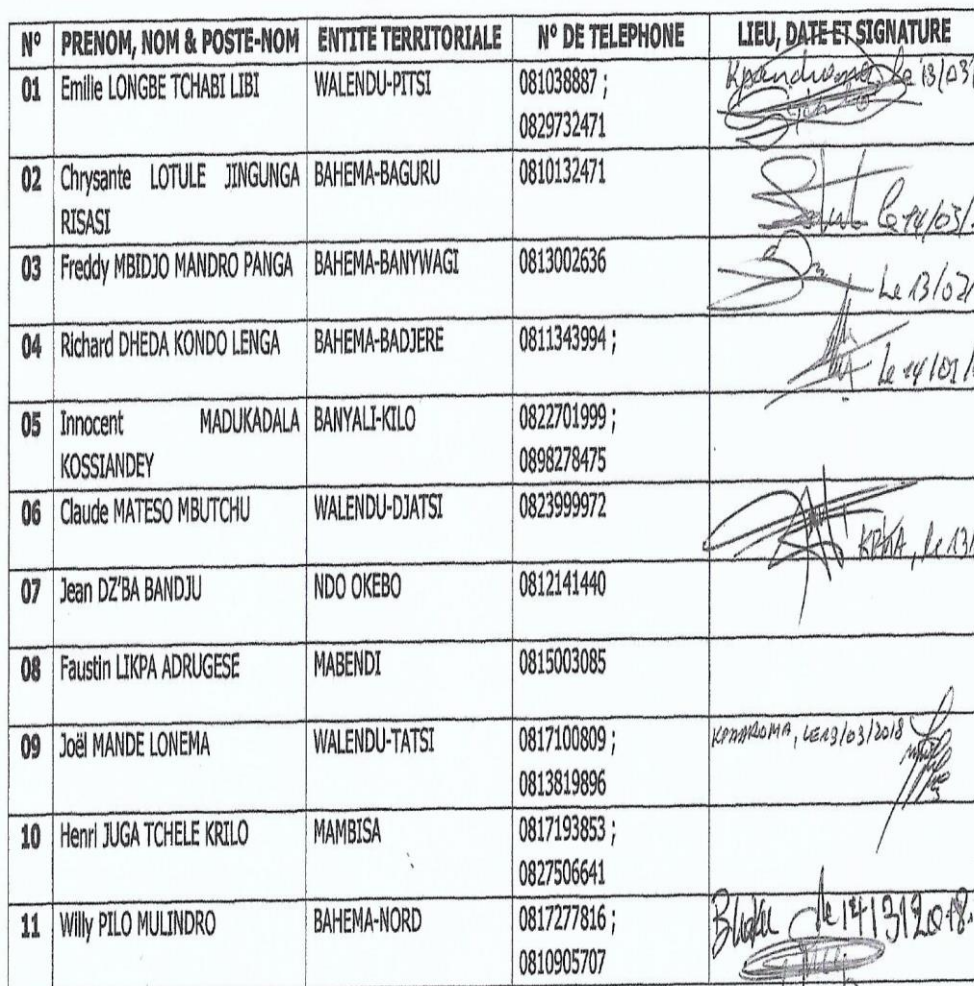 N° PRENOM, NOM & POSTE-NOM ENTITE TERRITORIALE N° DE TELEPHONE LIEU, DATE ET SIGNATURE
01 Emilie LONGBE TCHABI LIBI WALENDU-PITSI 081038887 ; le 13/03/
0829732471
02 Chrysante LOTULE JINGUNGA BAHEMA-BAGURU 0810132471
RISASI le 14/03/
03 Freddy MBIDJO MANDRO PANGA BAHEMA-BANYWAGI 0813002636
Le 13/03/
04 Richard DHEDA KONDO LENGA BAHEMA-BADJERE 0811343994 ;
Le 14/03/
05 Innocent MADUKADALA BANYALI-KILO 0822701999 ;
KOSSIANDEY 0898278475
06 Claude MATESO MBUTCHU WALENDU-DJATSI 0823999972
le 13/
07 Jean DZ'BA BANDJU NDO OKEBO 0812141440
08 Faustin LIKPA ADRUGESE MABENDI 0815003085
09 Joël MANDE LONEMA WALENDU-TATSI 0817100809 ; KPANDROMA, LE 13/03/2018
0813819896
10 Henri JUGA TCHELE KRILO MAMBISA 0817193853 ;
0827506641
11 Willy PILO MULINDRO BAHEMA-NORD 0817277816 ; le 14/3/2018
0810905707